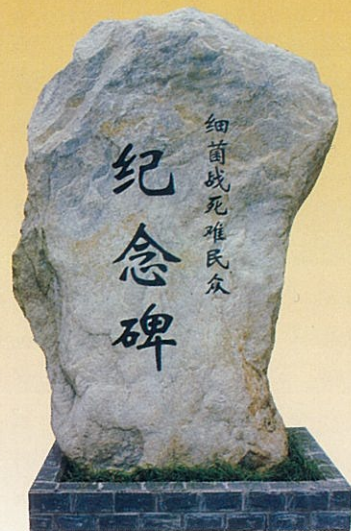 细菌战死难民众
纪念碑